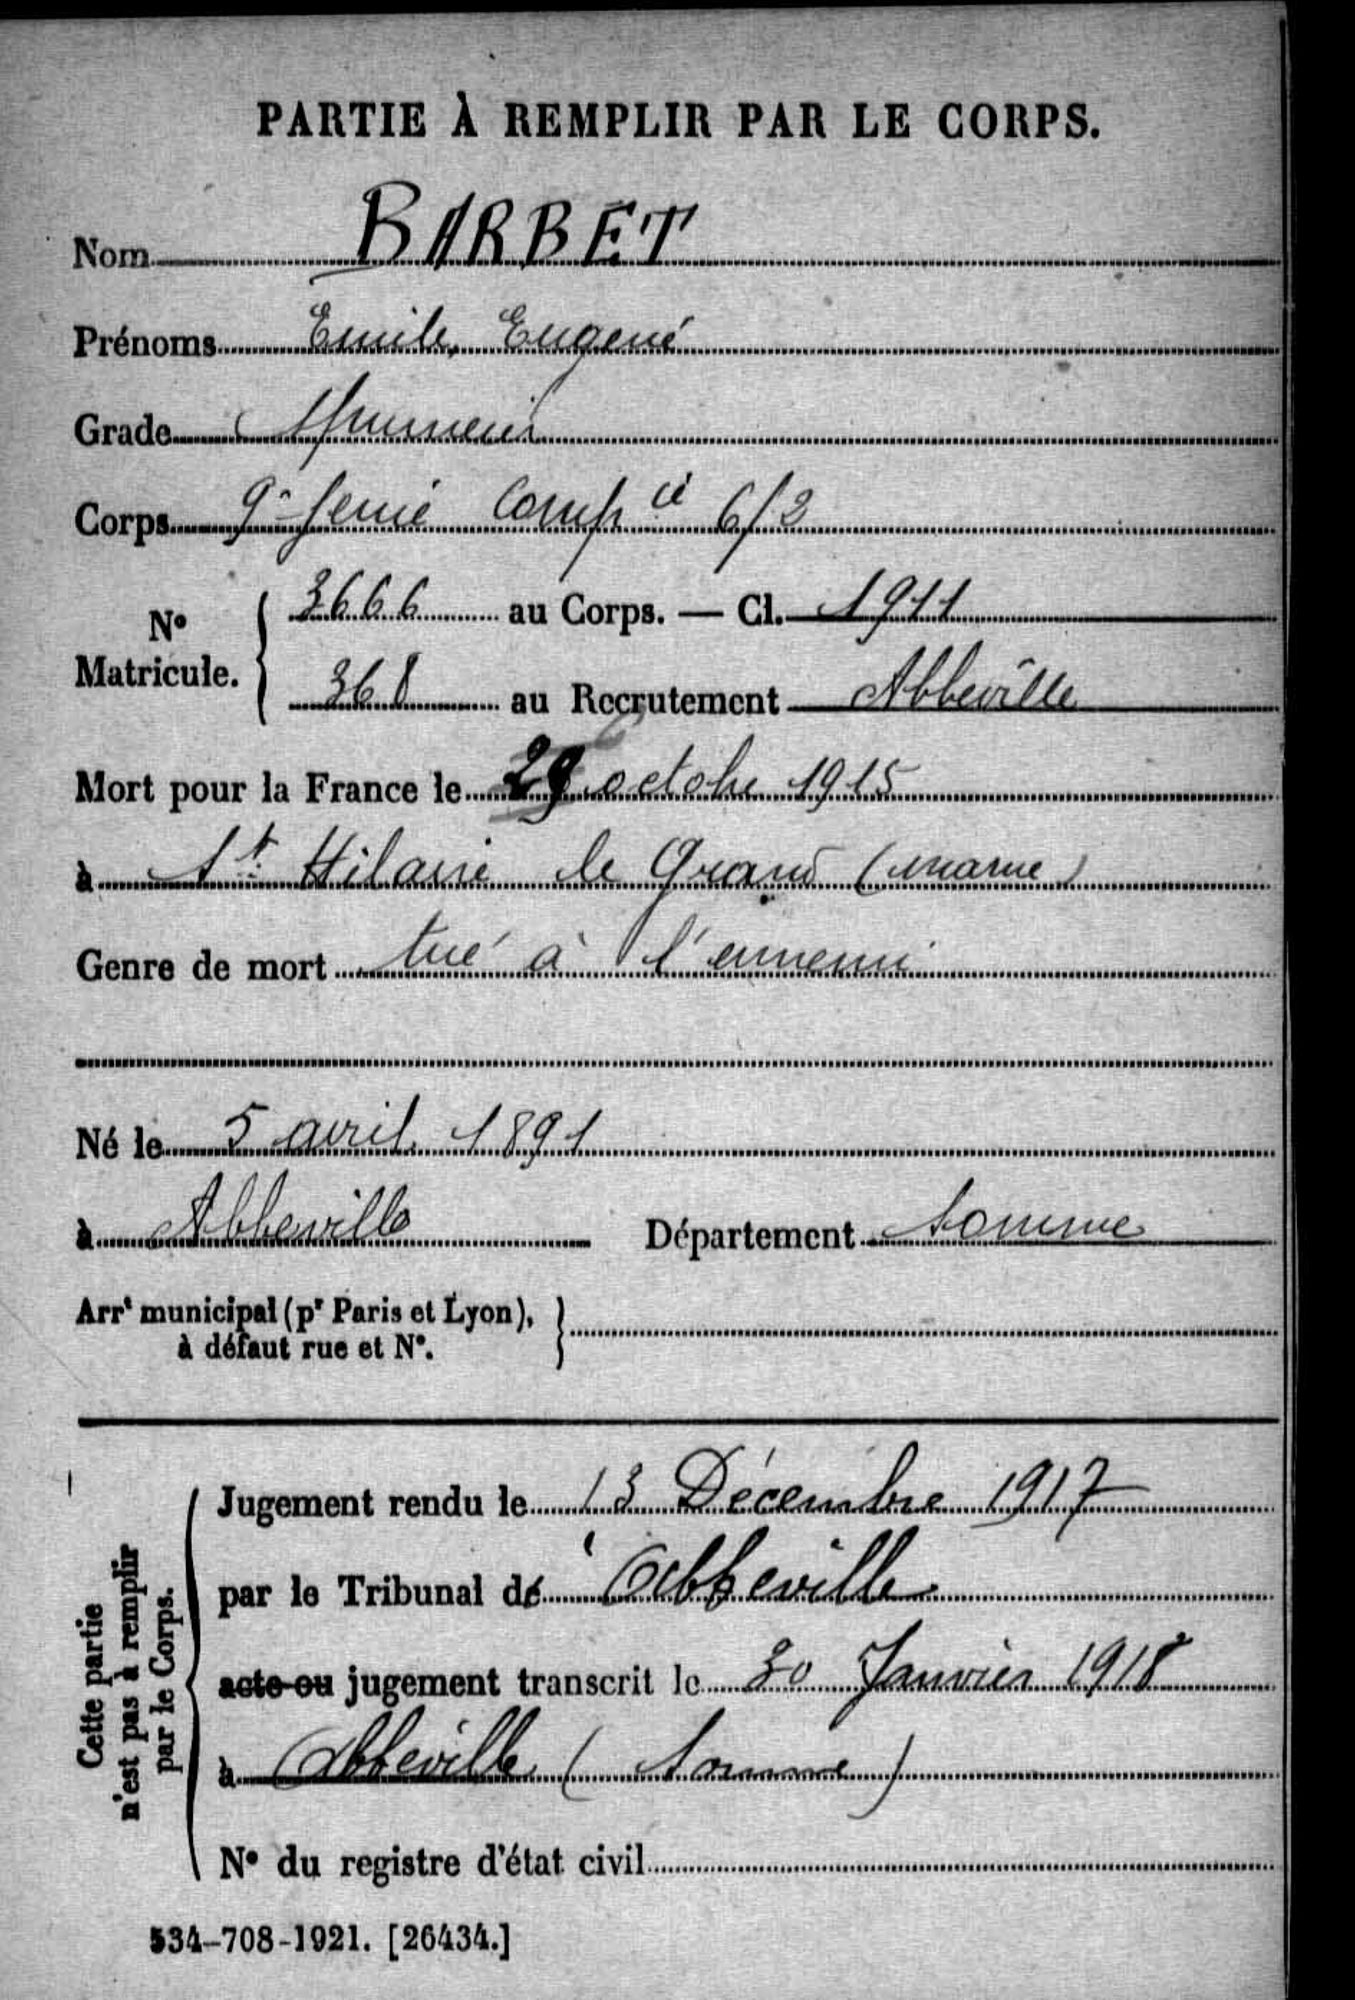 PARTIE À REMPLIR PAR LE CORPS.
Nom BARBET
Prénoms Emile, Eugené
Grade
Corps 9e Genie Comp ie 6/2
No Matricule. 3666 au Corps. — Cl. 1911
368 au Recrutement Abbeville
Mort pour la France le 29 octobre 1915
à St Hilaire le Grand (Marne)
Genre de mort tué à l'ennemi
Né le 5 avril 1891
à Abbeville Département Somme
Arrt municipal (pr Paris et Lyon), à défaut rue et No.
Cette partie n'est pas à remplir par le Corps.
Jugement rendu le 13 Décembre 1917
par le Tribunal de Abbeville
acte ou jugement transcrit le 30 Janvier 1918
à Abbeville (Somme)
No du registre d'état civil
534-708-1921. [26434.]